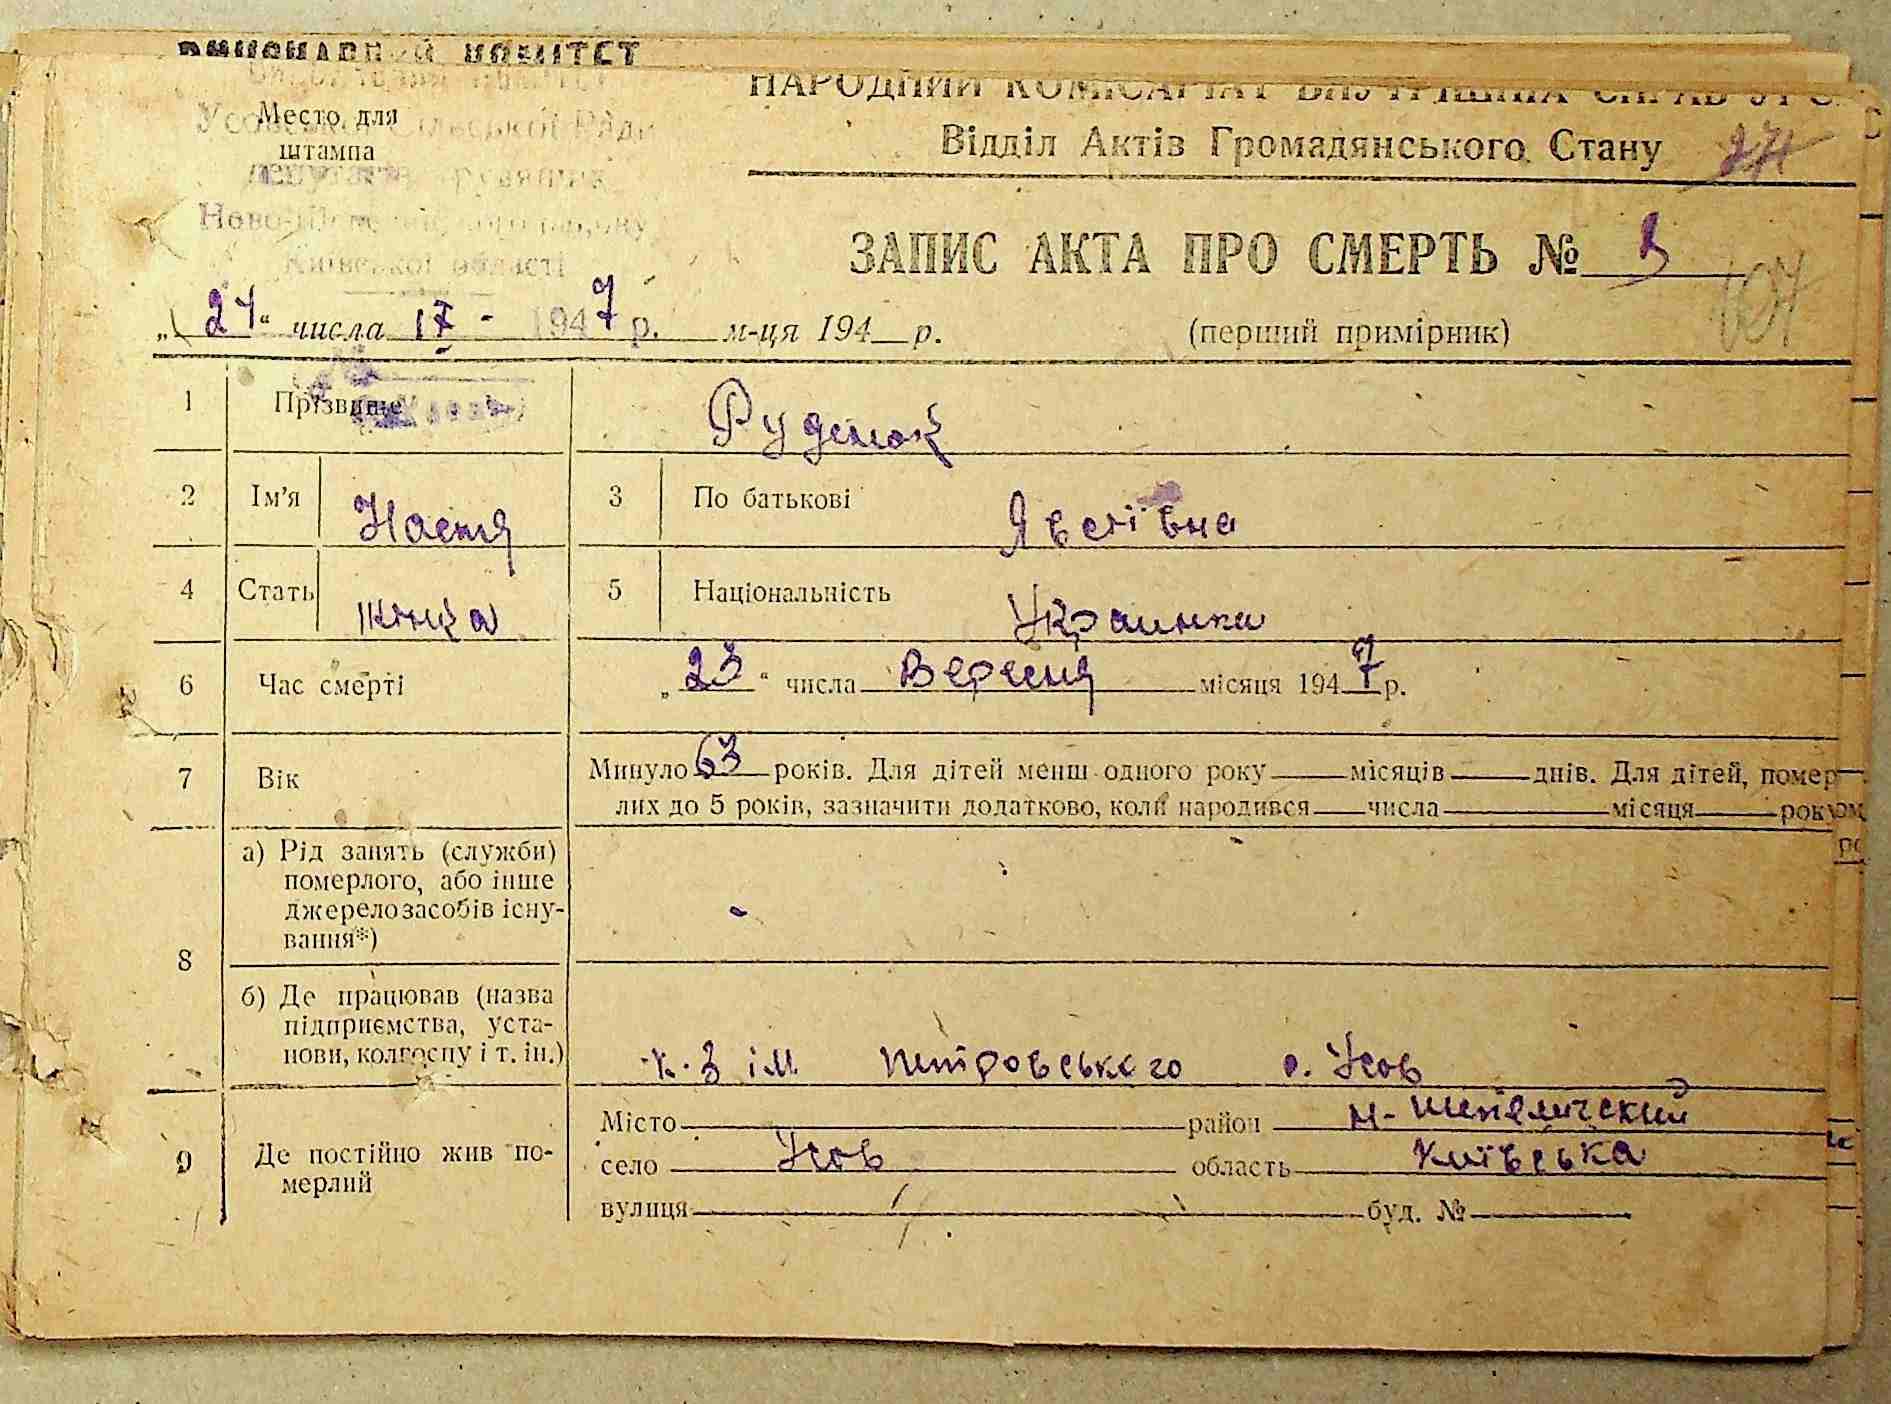 КОМІТЕТ
Усовської Сільської Ради
Київської області
Место для
штампа
НАРОДНИЙ КОМІСАРІАТ ВНУТРІШНІХ СПРАВ УРСР
Відділ Актів Громадянського Стану
ЗАПИС АКТА ПРО СМЕРТЬ №
„24“ числа 1947 р. м-ця 194 р. (перший примірник)
1 Прізвище
2 Ім'я Настя 3 По батькові
4 Стать жінка 5 Національність Украинка
6 Час смерті „23“ числа Вересня місяця 1947 р.
7 Вік Минуло 63 років. Для дітей менш одного року місяців днів. Для дітей, помер-
лих до 5 років, зазначити додатково, коли народився числа місяця року
8 а) Рід занять (служби)
померлого, або інше
джерело засобів існу-
вання*)
б) Де працював (назва
підприємства, уста-
нови, колгоспу і т. ін.) к-з ім Петровського с. Усов
9 Де постійно жив по-
мерлий
Місто район Н-Шепеличский
село Усов область Київська
вулиця буд. №